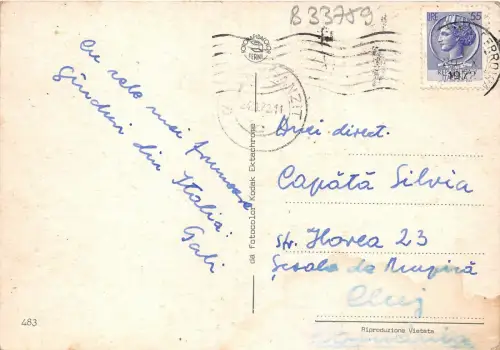 B 33759
LIRE 55
1972
Cu cele mai frumoase
gânduri din Italia.
Gabi
da Fotocolor Kodak Ektachrome
Dnei direct.
Capătă Silvia
str. Horea 23
Școala de Muzică
Cluj
463
Riproduzione Vietata